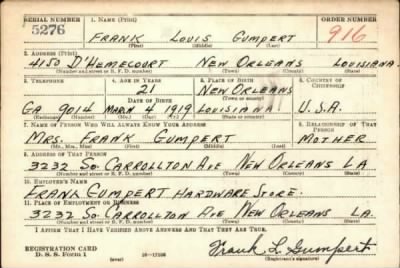 SERIAL NUMBER 1. NAME (Print) ORDER NUMBER
5276 FRANK LOUIS GUMPERT 916
(First) (Middle) (Last)
2. ADDRESS (Print)
4150 D'HEMECOURT NEW ORLEANS LOUISIANA.
(Number and street or R. F. D. number) (Town) (County) (State)
3. TELEPHONE 4. AGE IN YEARS 5. PLACE OF BIRTH 6. COUNTRY OF CITIZENSHIP
21 NEW ORLEANS
DATE OF BIRTH (Town or county)
GA 9014 MARCH 4 1919 LOUISIANA U.S.A.
(Exchange) (Number) (Mo.) (Day) (Yr.) (State or country)
7. NAME OF PERSON WHO WILL ALWAYS KNOW YOUR ADDRESS 8. RELATIONSHIP OF THAT PERSON
MRS. FRANK GUMPERT MOTHER
(Mr., Mrs., Miss) (First) (Middle) (Last)
9. ADDRESS OF THAT PERSON
3232 SO. CARROLLTON AVE NEW ORLEANS LA
(Number and street or R. F. D. number) (Town) (County) (State)
10. EMPLOYER'S NAME
FRANK GUMPERT HARDWARE STORE.
11. PLACE OF EMPLOYMENT OR BUSINESS
3232 SO. CARROLLTON AVE NEW ORLEANS LA.
(Number and street or R. F. D. number) (Town) (County) (State)
I AFFIRM THAT I HAVE VERIFIED ABOVE ANSWERS AND THAT THEY ARE TRUE.
REGISTRATION CARD
D. S. S. Form 1 (over) Frank L Gumpert
(Registrant's signature)